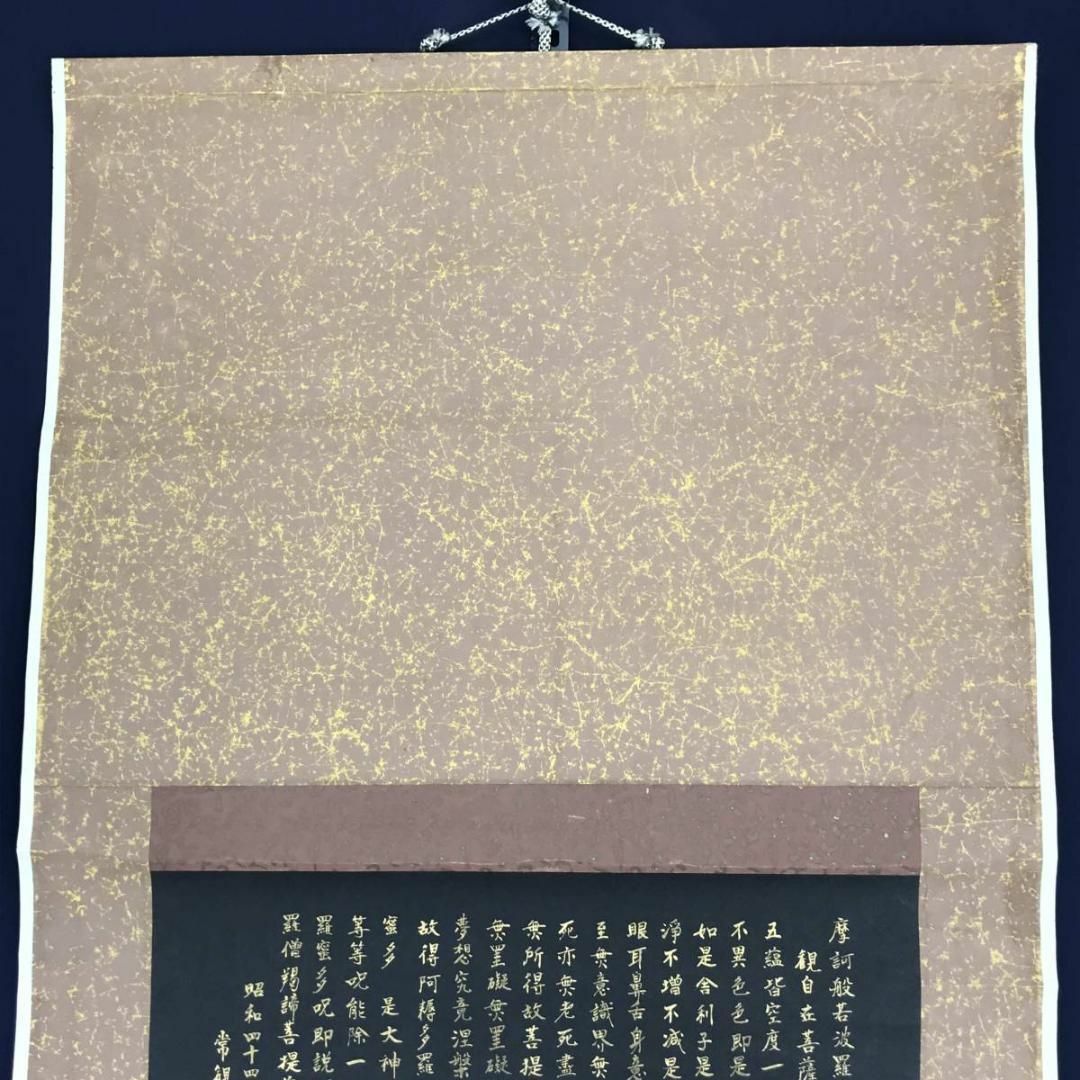 摩訶般若波羅
観自在菩薩
五蘊皆空度一
不異色色即是
如是舎利子是
淨不增不減是
眼耳鼻舌身意
至無意識界無
死亦無老死盡
無所得故菩提
無罣礙無罣礙
夢想究竟涅槃
故得阿耨多羅
蜜多 是大神
等等呪能除一
羅蜜多呪即説
羅僧羯諦菩提
昭和四十四
常観